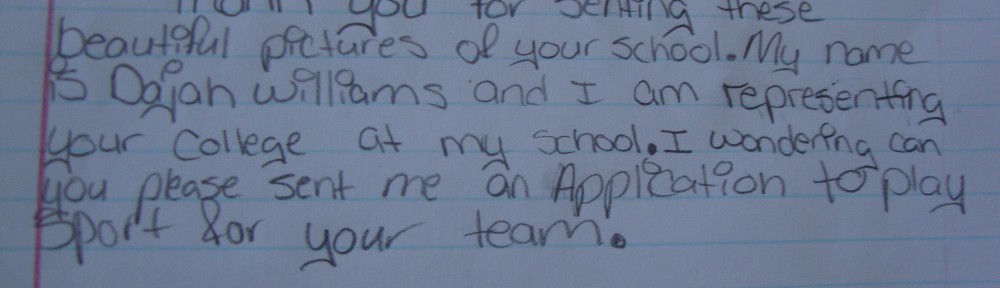 thank you for senting these
beautiful pictures of your school. My name
is Dajah Williams and I am representing
your College at my school. I wondering can
you please sent me an Application to play
Sport for your team.